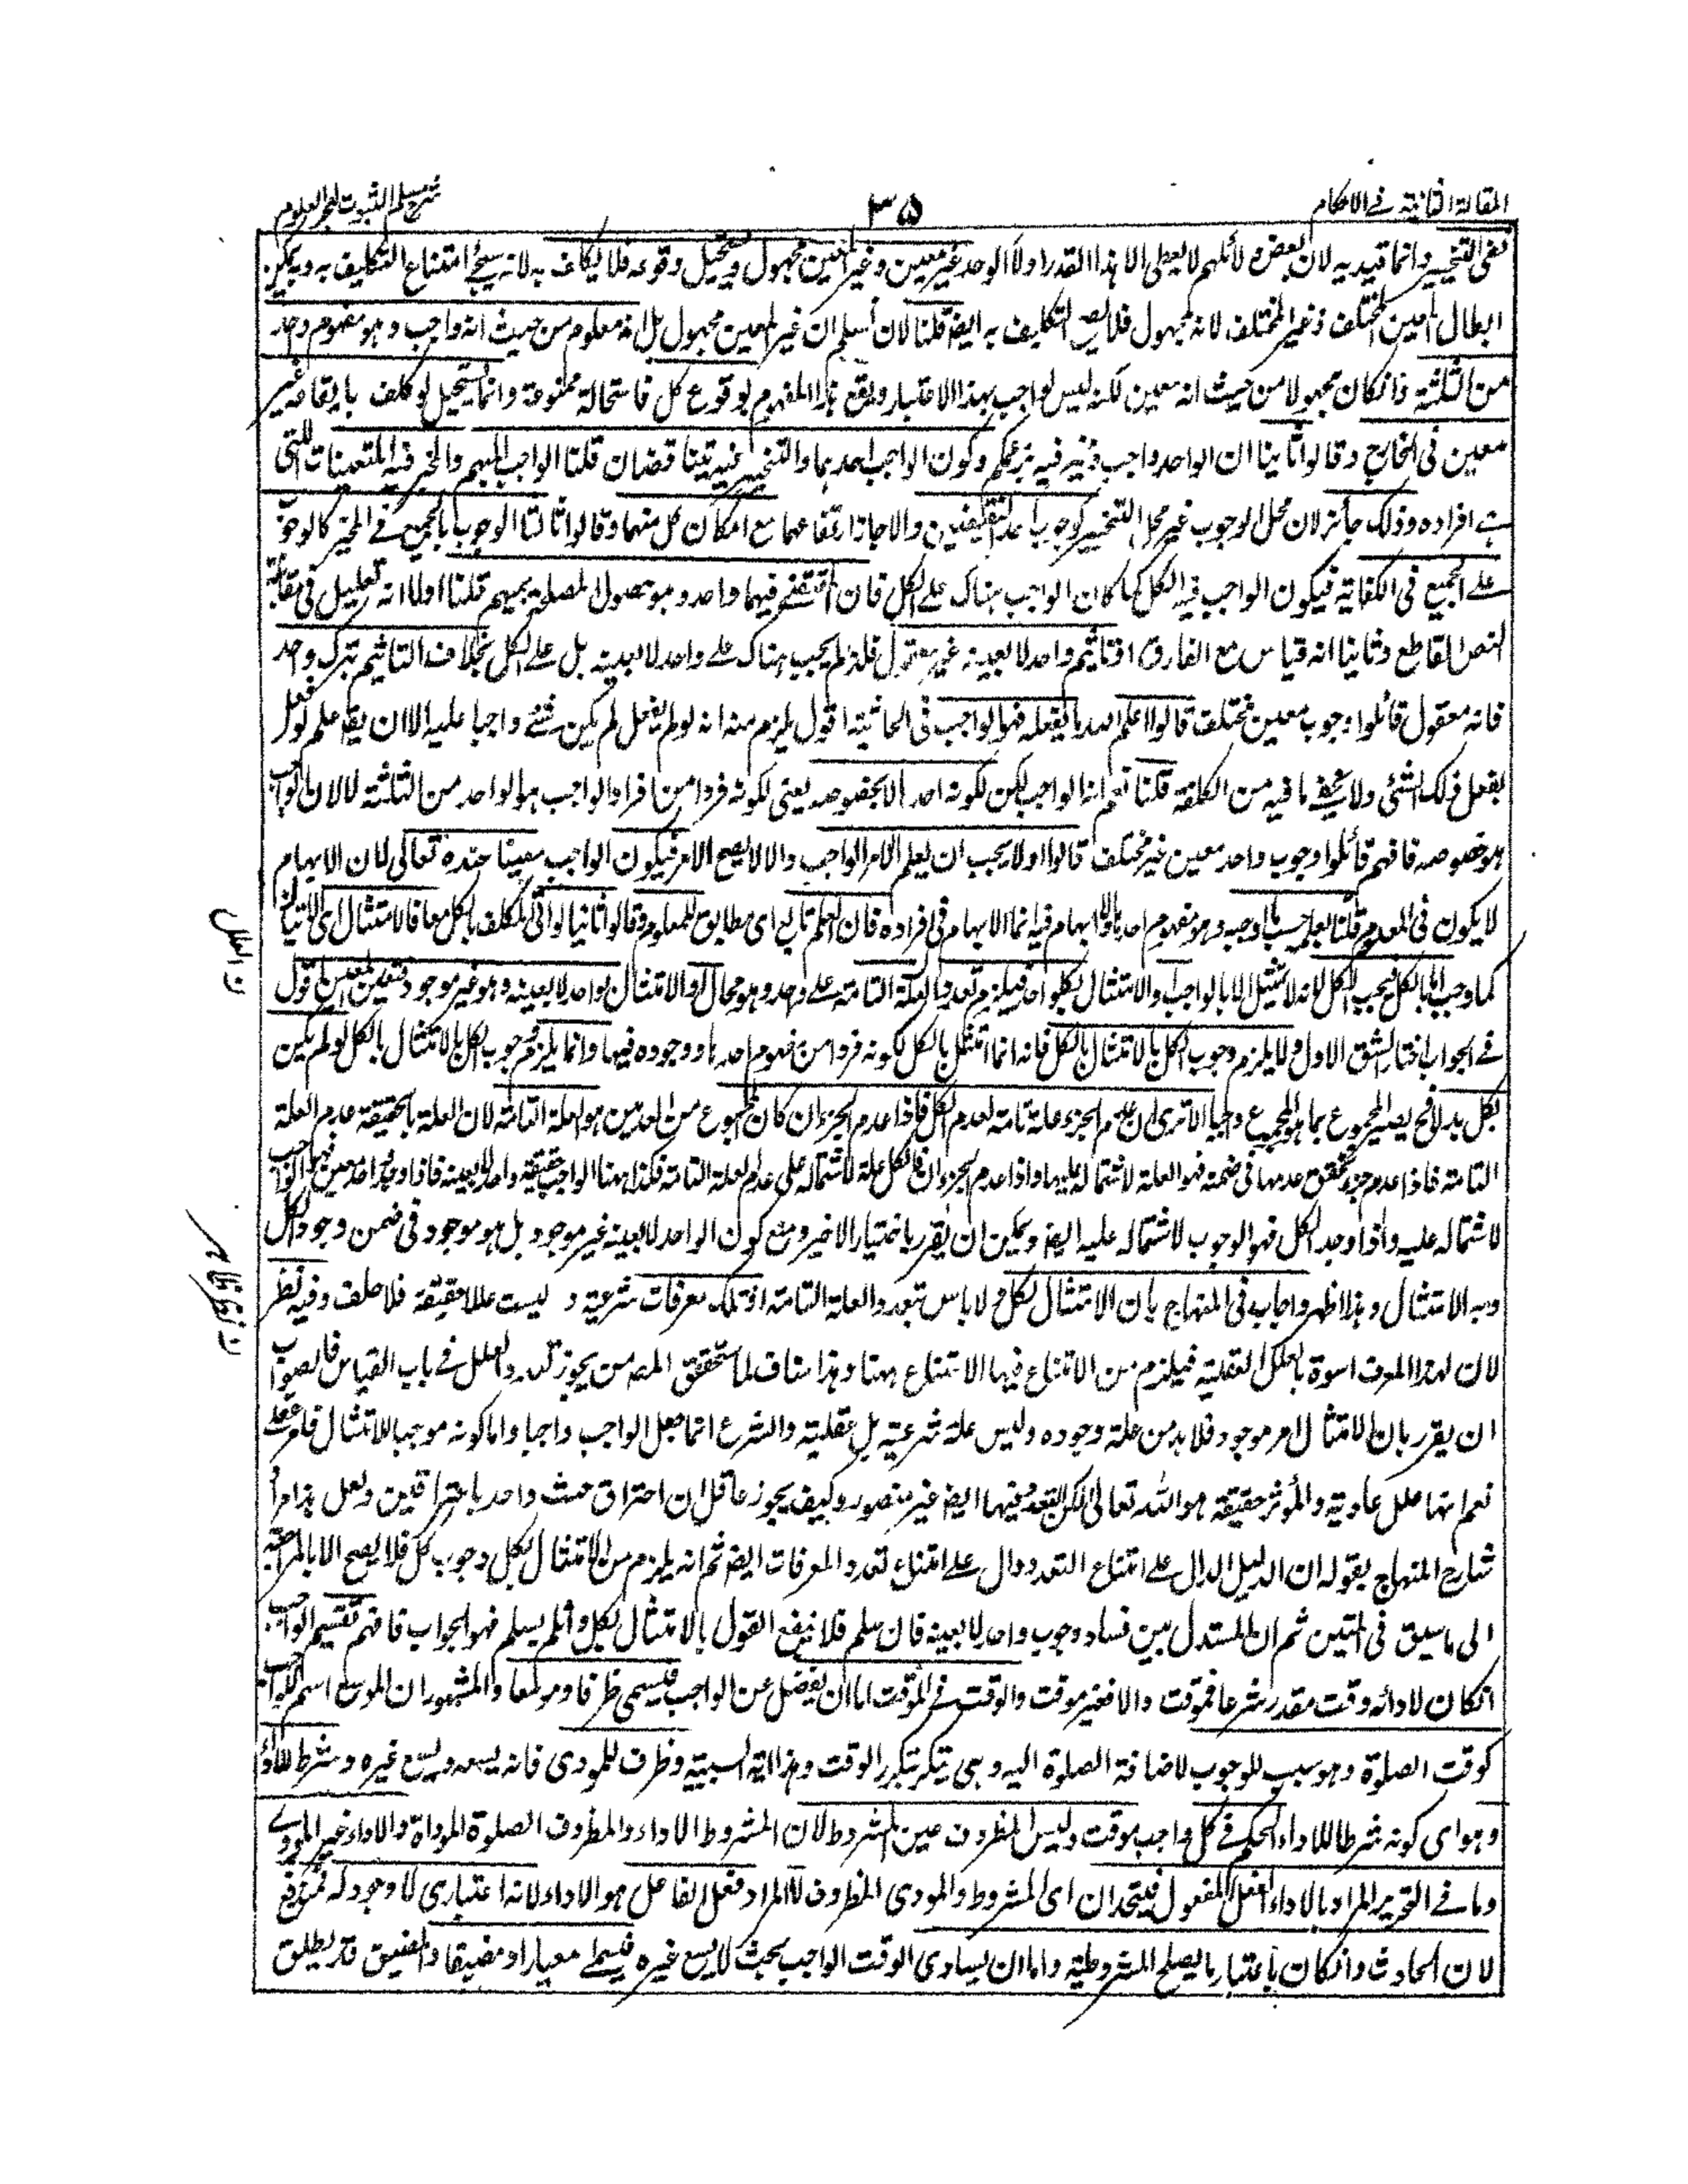 المقالة الثانية في الاحكام
٣٥
شرح مسلم الثبوت لبحر العلوم
نفى التخيير وانما قيد به لان بعض دلائلهم لا يعطى الا هذا القدر اولا الواحد غير معين وغير المعين مجهول ويستحيل وقوعه فلا يكلف به لانه سيجئ امتناع التكليف به ويمكن
ابطال المعين المختلف وغير المختلف لانه مجهول فلا يصح التكليف به ايضا قلنا لا نسلم ان غير المعين مجهول بل انه معلوم من حيث انه واجب وهو مفهوم واحد
من الثلثة وانكان مجهولا من حيث انه معين لكنه ليس لواجب بهذا الاعتبار ويقع هذا المفهوم لوقوع كل فاستحالة ممنوعة وانما يستحيل لو كلف بايقاعه غير
معين فى الخارج وقالوا ثانيا ان الواحد واجب ومخير فيه بزعمكم وكون الواجب احدهما والتخيير فيه يتناقضان قلنا الواجب المبهم والمخير فيه المتعينات التى
هے افراده وذلك جائز لان محل الوجوب غير محل التخيير كوجوب احد النقيضين والا جاز ارتفاعهما مع امكان كل منهما وقالوا ثالثا الوجوب بالجميع فے المخير كالوجوب
علے الجميع فى الكفاية فيكون الواجب فيه الكل كما كان الواجب هناك علے الكل فان المقتضى فيهما واحد وهو حصول المصلحة بمبهم قلنا اولا انه تعليل فى مقابلة
النص القاطع وثانيا انه قياس مع الفارق اذ تاثيم واحد لا بعينه غير معقول فلذا لم يجب هناك علے واحد لا بعينه بل علے الكل بخلاف التاثيم بترك واحد
فانه معقول قائلوا وجوب معين مختلف قالوا علم الله ما يفعله فهو الواجب فى الحاشية اقول يلزم منه انه لو لم يفعل لم يكن شئے واجبا عليه الا ان يقال علم لو فعل
يفعل ذلك الشئى ولا يخفى ما فيه من الكلفة قلنا نعم انه الواجب لكن لكونه احدها لا بخصوصه يعنى لكونه فردا من افراد الواجب هو الواحد من الثلثة لا لان الواجب
هو خصوصه فافهم قائلوا وجوب واحد معين غير مختلف قالوا اولا يجب ان يعلم الامر الواجب والا لا يصح الامر فيكون الواجب معينا عنده تعالى لان الابهام
لا يكون فى المعلوم قلنا يعلمه حسب ما اوجبه وهو مفهوم احدها ولا ابهام فيه انما الابهام فى افراده فان العلم تابع اى مطابق للمعلوم وقالوا ثانيا لو اتى المكلف بالكل معا فالامتثال اى الاتيان
كما وجب اما بالكل فيجب الكل لانه لا يمتثل الا بالواجب والامتثال بكل واحد فيلزم تعدد العلة التامة علے واحد وهو محال او الامتثال بواحد لا بعينه وهو غير موجود فتعين المعين اقول
فے الجواب اختار الشق الاول ولا يلزم وجوب الكل بالامتثال بالكل فانه انما امتثل بالكل لكونه فردا من مفهوم احدها ووجوده فيها وانما يلزم وجوب الكل بالامتثال بالكل لو لم يكن
لكل بدلا فح يصير المجموع بما هو المجموع واجبا الا ترى ان عدم الجزء علة تامة لعدم الكل فاذا عدم الجزءان كان المجموع من العدمين هو العلة التامة لان العلة بالحقيقة عدم العلة
التامة فاذا عدم جزء تحقق عدمها فى ضمنه فهو العلة لاشتماله عليها واذا عدم الجزءان فالكل علة لاشتماله على عدم العلة التامة فكذا ههنا الواجب حقيقة واحد لا بعينه فاذا وجد واحد معين فهو الواجب
لاشتماله عليه واذا وجد الكل فهو الوجوب لاشتماله عليه ايضا ويمكن ان يقرر باختيار الاخير ومنع كون الواحد لا بعينه غير موجود بل هو موجود فى ضمن وجود الكل
وبه الامتثال وهذا اظهر واجاب فى المنهاج بان الامتثال بكل ح لا باس بتعدد العلة التامة اذ تلك معرفات شرعية و ليست عللا حقيقة فلا خلف وفيه نظر
لان لهذا المعرف اسوة بالعلل العقلية فيلزم من الامتناع فيها الامتناع ههنا وهذا مناف لما سيحقق المصـ من يجوز تعدد العلل فے باب القياس فالصواب
ان يقرر بان الامتثال امر موجود فلا بد من علة وجوده وليس علة شرعية بل عقلية والشرع انما جعل الواجب واجبا واما كونه موجبا للامتثال فامر عقلے
نعم انها علل عادية والمؤثر حقيقة هو الله تعالى لكن التعدد فيها ايضا غير متصور وكيف يجوز عاقل ان احتراق خشب واحد باحتراقين ولعل هذا مراد
شارح المنهاج بقوله ان الدليل الدال علے امتناع التعدد دال علے امتناع تعدد المعرفات ايضا ثم انه يلزم من الامتثال بكل وجوب كل فلا يصح الا بالمراجعة
الى ما سبق فى المتين ثم ان المستدل بين فساد وجوب واحد لا بعينه فان سلم فلا ينفع القول بالامتثال بكل وان لم يسلم فهو الجواب فافهم تقسيم الواجب
انكان لادائه وقت مقدر شرعا فموقت والا فغير موقت والوقت فے الموقت اما ان يفضل عن الواجب فيسمى ظرفا وموسعا والمشهور ان الموسع اسم للواجب
كوقت الصلوة وهو سبب للوجوب لاضافة الصلوة اليه وهى تتكرر بتكرر الوقت وهذا اية السببية وظرف للمودى فانه يسعه ويسع غيره وشرط للاداء
وهو اى كونه شرطا للاداء الحكم فے كل واجب موقت وليس المظروف عين المشروط لان المشروط الاداء والمظروف الصلوة المؤداة والاداء غير المودى
وما فے التحرير المراد بالاداء الفعل المفعول فيتحدان اى المشروط والمودى المظروف لا المراد فعل الفاعل هو الاداء لانه اعتبارى لا وجود له فمندفع
لان الحادث وانكان باعتبار ما يصلح المشروطية واما ان يساوى الوقت الواجب بحيث لا يسع غيره فيسمے معيارا ومضيقا والمضيق قد يطلق